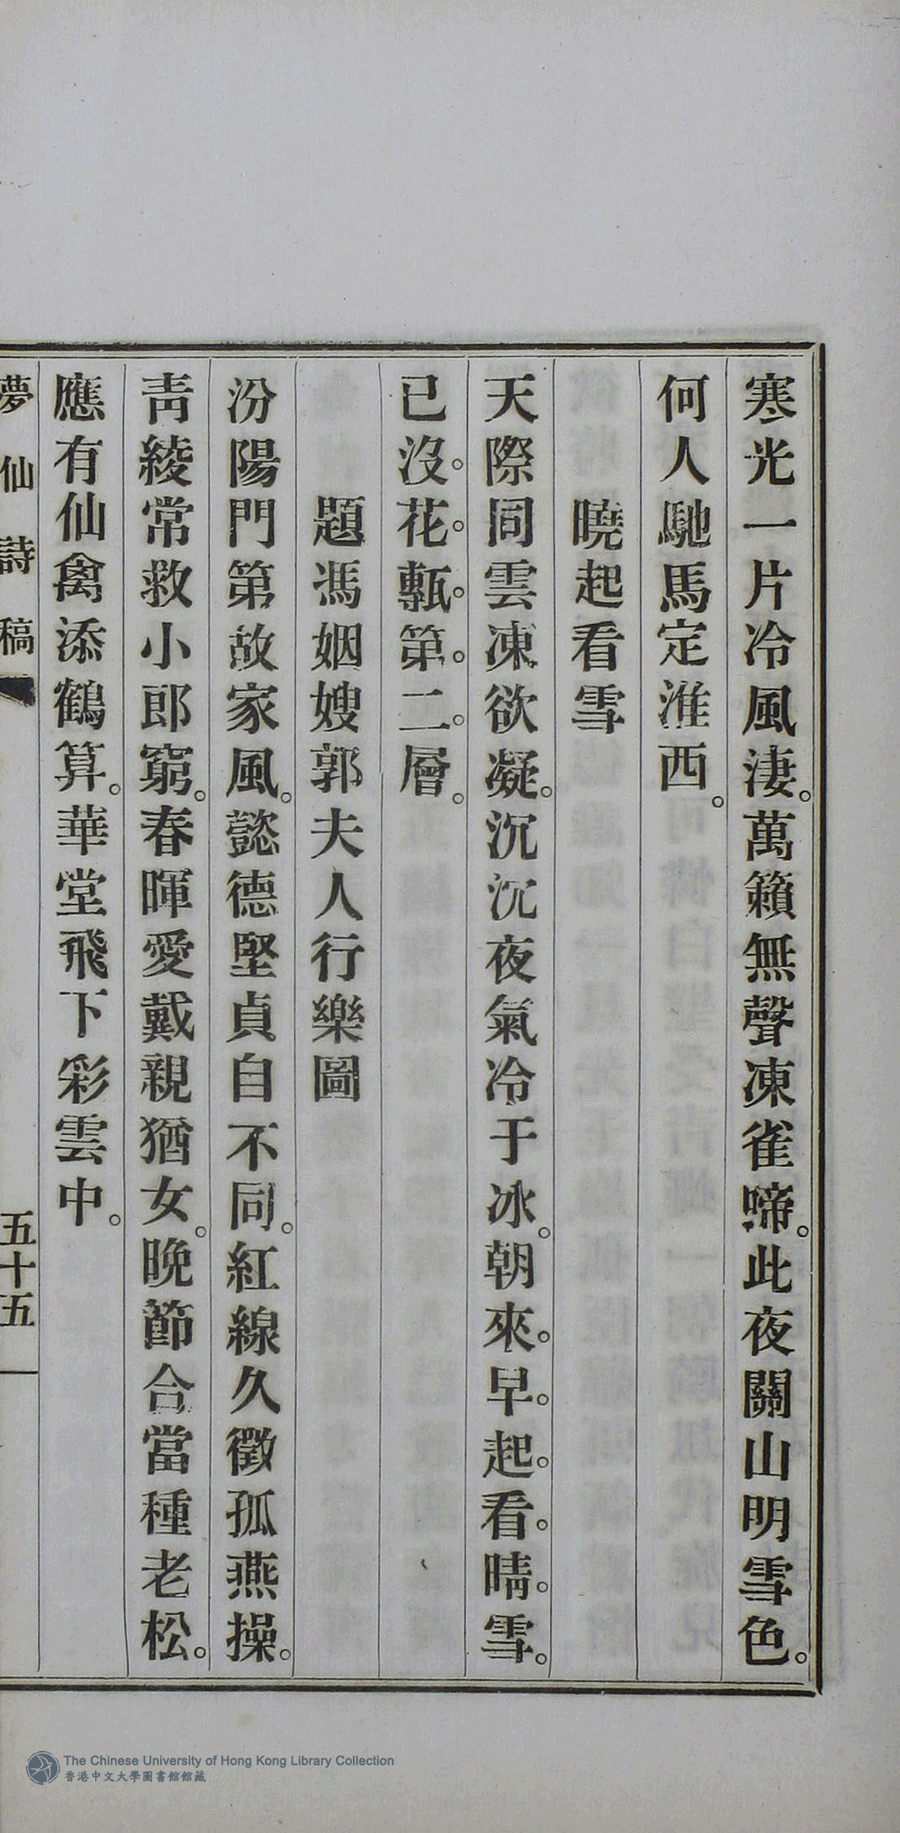 寒光一片冷風淒。萬籟無聲凍雀啼。此夜關山明雪色。
何人馳馬定淮西。
曉起看雪
天際同雲凍欲凝。沉沉夜氣冷于冰。朝來。早。起。看。晴。雪。
已沒。花。甎。第。二。層。
題馮姻嫂郭夫人行樂圖
汾陽門第故家風。懿德堅貞自不同。紅線久徵孤燕操。
靑綾常救小郎窮。春暉愛戴親猶女。晚節合當種老松。
應有仙禽添鶴算。華堂飛下彩雲中。
夢仙詩稿
五十五
The Chinese University of Hong Kong Library Collection
香港中文大學圖書館館藏